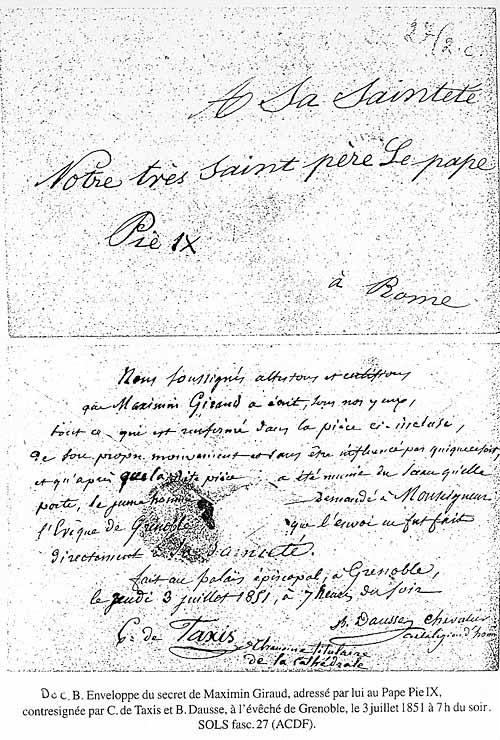 27/2.c
A Sa Sainteté
Notre très Saint père Le pape
Pie IX
à Rome
Nous soussignés attestons et certifions
que Maximin Giraud a écrit, sous nos yeux,
tout ce qui est renfermé dans la pièce ci-incluse,
de son propre mouvement et sans être influencé par quique ce soit,
et qu'après que la dite pièce a été munie du sceau qu'elle
porte, le jeune homme demandé à Monseigneur
l'Evêque de Grenoble que l'envoi en fut fait
directement à Sa Sainteté.
fait au palais épiscopal, à Grenoble,
le jeudi 3 juillet 1851, à 7 heures du soir
C. de Taxis
Chanoine titulaire
de la cathédrale
Dausse, chevalier
Doc. B. Enveloppe du secret de Maximin Giraud, adressé par lui au Pape Pie IX,
contresignée par C. de Taxis et B. Dausse, à l'évêché de Grenoble, le 3 juillet 1851 à 7 h du soir.
SOLS fasc. 27 (ACDF).